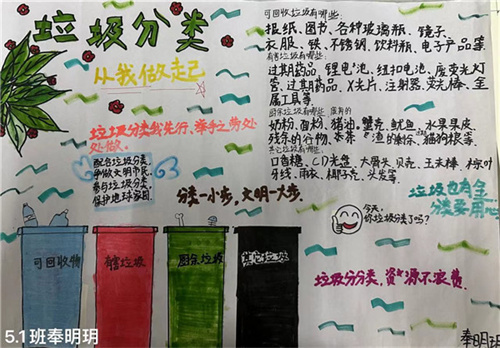 垃圾分类
从我做起
垃圾分类我先行、举手之劳处
处做。
配合垃圾分类
争做文明市民
参与垃圾分类
保护地球家园
分类一小步,文明一大步。
可回收物
有害垃圾
厨余垃圾
其他垃圾
可回收垃圾有哪些:
报纸、图书、各种玻璃瓶、镜子、
衣服、铁、不锈钢、饮料瓶、电子产品等
有害垃圾有哪些:
过期药品、锂电池、纽扣电池、废荧光灯
管、过期药品、X光片、注射器、荧光棒、金
属工具等
厨余垃圾有哪些:
奶粉、面粉、猪油。蟹壳、鱿鱼、水果果皮、
残余的谷物、茶
猫狗粮等
其它垃圾有哪些:
口香糖、CD光盘、大骨头、贝壳、玉米棒、粽叶
牙线、雨衣、椰子壳、头发等。
今天,
你垃圾分类了吗?
垃圾也有宝
分类要用心
垃圾分分类,资源不浪费。
5.1班奉明玥
奉明玥